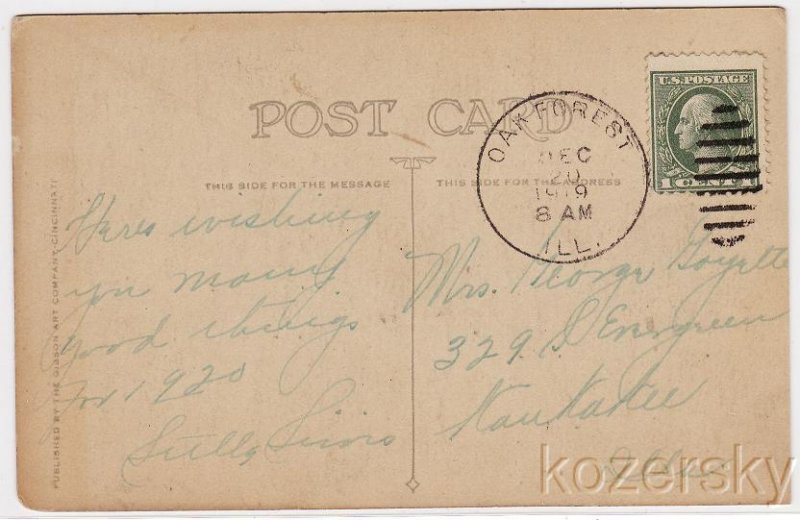 POST CARD
THIS SIDE FOR THE MESSAGE
THIS SIDE FOR THE ADDRESS
U.S. POSTAGE
1 CENT 1
OAK FOREST
DEC
20
1919
8 AM
ILL.
Heres wishing
you many
good things
for 1920
Sims
Mrs. George Goyette
329 S Evergreen
Kankakee
Ills.
PUBLISHED BY THE GIBSON ART COMPANY, CINCINNATI
kozersky